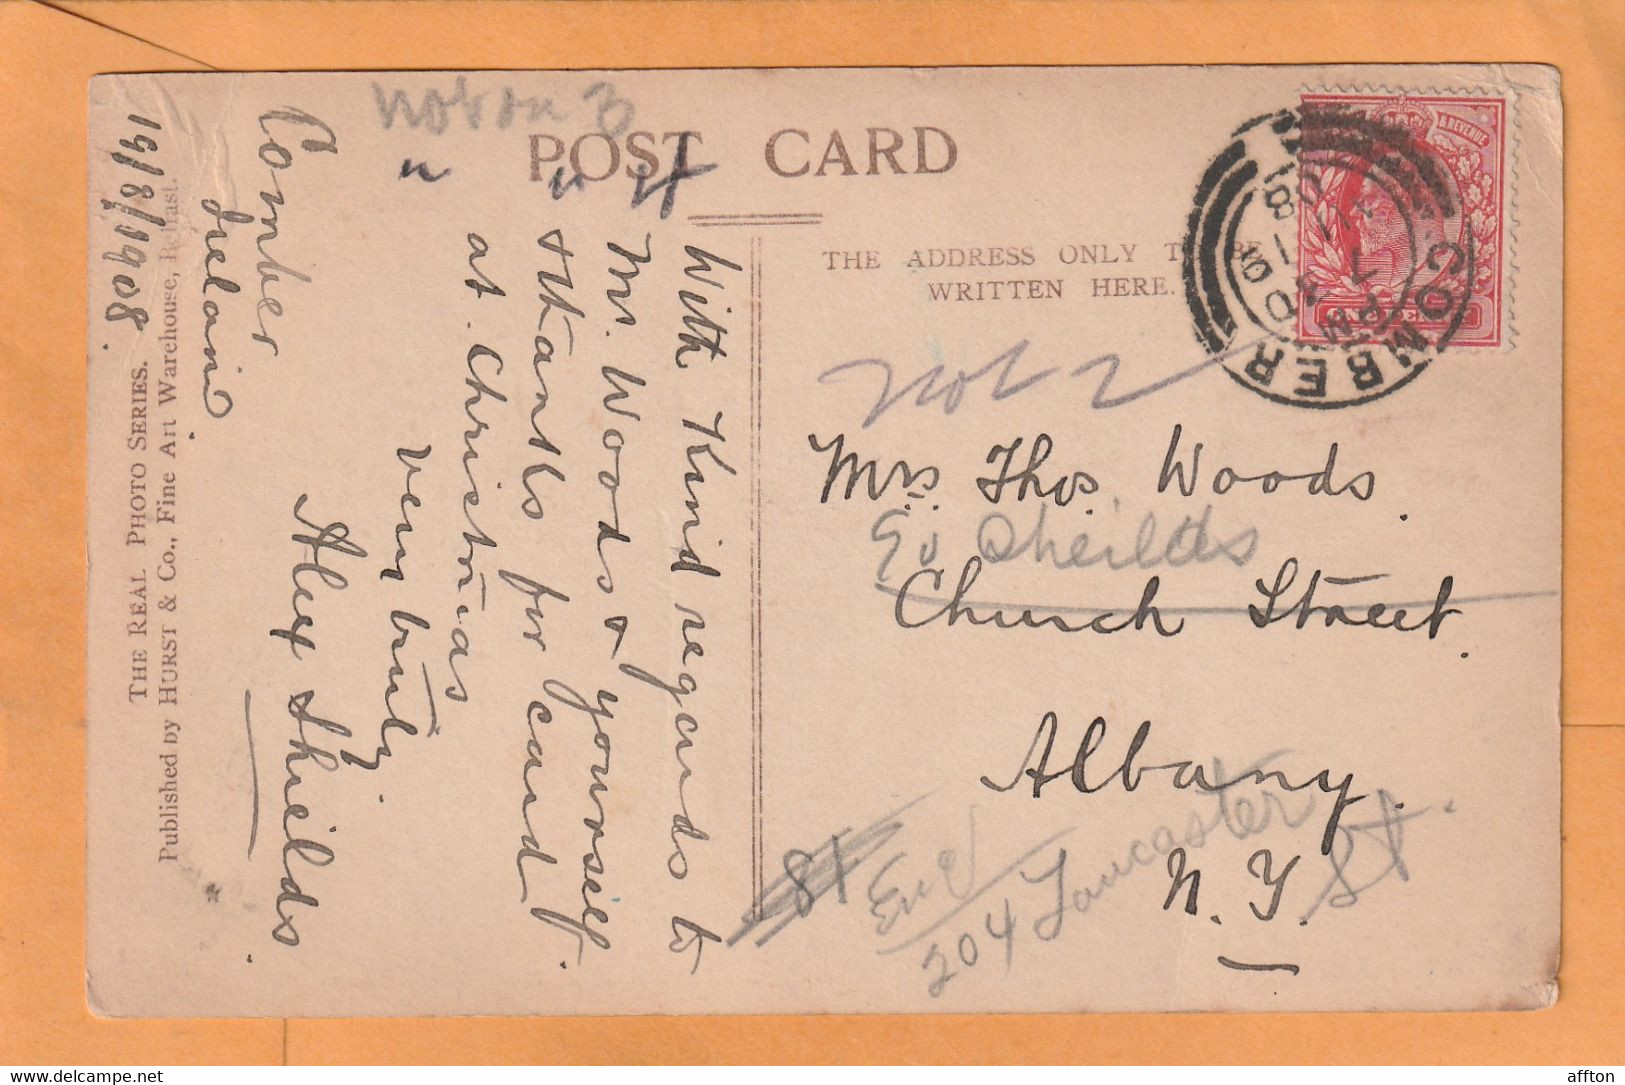 not on 3
" " 4
POST CARD
THE ADDRESS ONLY TO BE
WRITTEN HERE.
COMBER
7 PM
08
& REVENUE
not 2
Mrs. Thos. Woods.
Church Street.
Albany.
N. Y.
204 Lancaster St.
Comber
Ireland
19/8/1908.
With Kind regards to
Mr. Woods & yourself
& thanks for card.
at Christmas
Very truly.
Alex Sheilds.
THE REAL PHOTO SERIES.
Published by HURST & Co., Fine Art Warehouse, Belfast.
delcampe.net
affton